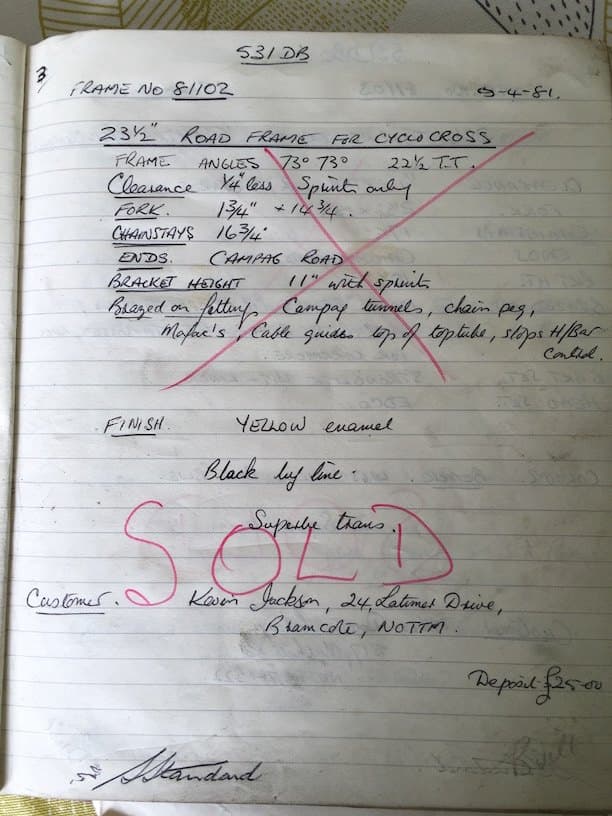 531 DB
3
FRAME NO 81102 9-4-81.
23½" ROAD FRAME FOR CYCLOCROSS
FRAME ANGLES 73° 73° 22½ T.T.
Clearance ¼" less Sprints only
FORK. 1¾" + 14¾.
CHAINSTAYS 16¾"
ENDS. CAMPAG ROAD
BRACKET HEIGHT 11" with sprints
Brazed on fittings Campag tunnels, chain peg,
Mafac's, Cable guides top of toptube, stops H/Bar
Control.
FINISH. YELLOW enamel
Black lug line.
Superbe trans.
SOLD
Customer. Kevin Jackson, 24, Latimer Drive,
Bramcote, NOTTM.
Deposit £25-00
Standard